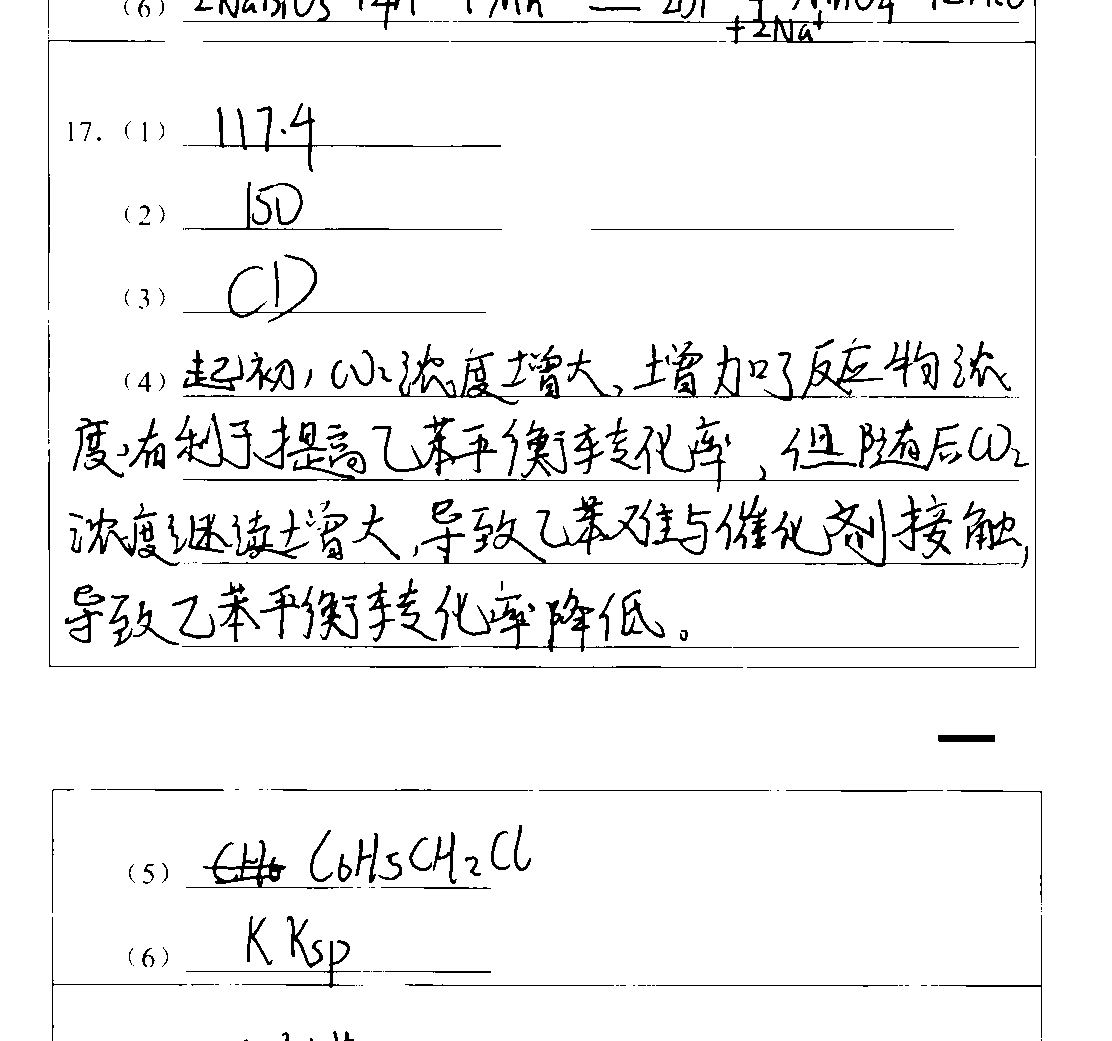 (6) 2NaBiO3
+2Na⁺
17. (1) 117.4
(2) 150
(3) CD
(4) 起初, CO₂浓度增大, 增加了反应物浓
度,有利于提高乙苯平衡转化率, 但随后CO₂
浓度继续增大,导致乙苯难与催化剂接触,
导致乙苯平衡转化率降低。
(5) C6H5CH₂Cl
(6) K Ksp